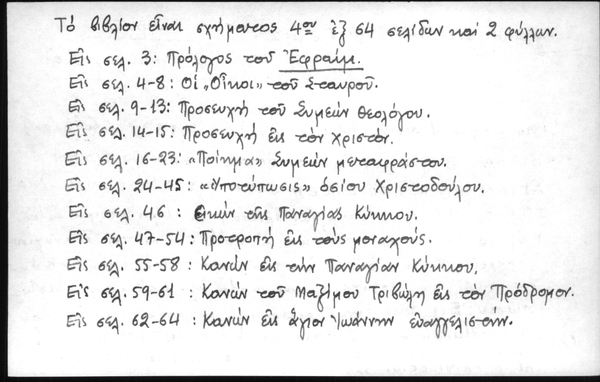 Τό βιβλίον εἶναι σχήματος 4ου ἐξ 64 σελίδων καί 2 φύλλων.
Εἰς σελ. 3: Πρόλογος τοῦ Ἐφραίμ.
Εἰς σελ. 4-8: Οἱ „Οἶκοι" τοῦ Σταυροῦ.
Εἰς σελ. 9-13: Προσευχή τοῦ Συμεών Θεολόγου.
Εἰς σελ. 14-15: Προσευχή εἰς τόν Χριστόν.
Εἰς σελ. 16-23: «Ποίημα» Συμεών μεταφράστου.
Εἰς σελ. 24-45: «Ὑποτύπωσις» ὁσίου Χριστοδούλου.
Εἰς σελ. 46: εἰκών τῆς Παναγίας Κύκκου.
Εἰς σελ. 47-54: Προτροπή εἰς τούς μοναχούς.
Εἰς σελ. 55-58: Κανών εἰς τήν Παναγίαν Κύκκου.
Εἰς σελ. 59-61: Κανών τοῦ Μαξίμου Τριβώλη εἰς τόν Πρόδρομον.
Εἰς σελ. 62-64: Κανών εἰς ἅγιον Ἰωάννην εὐαγγελιστήν.